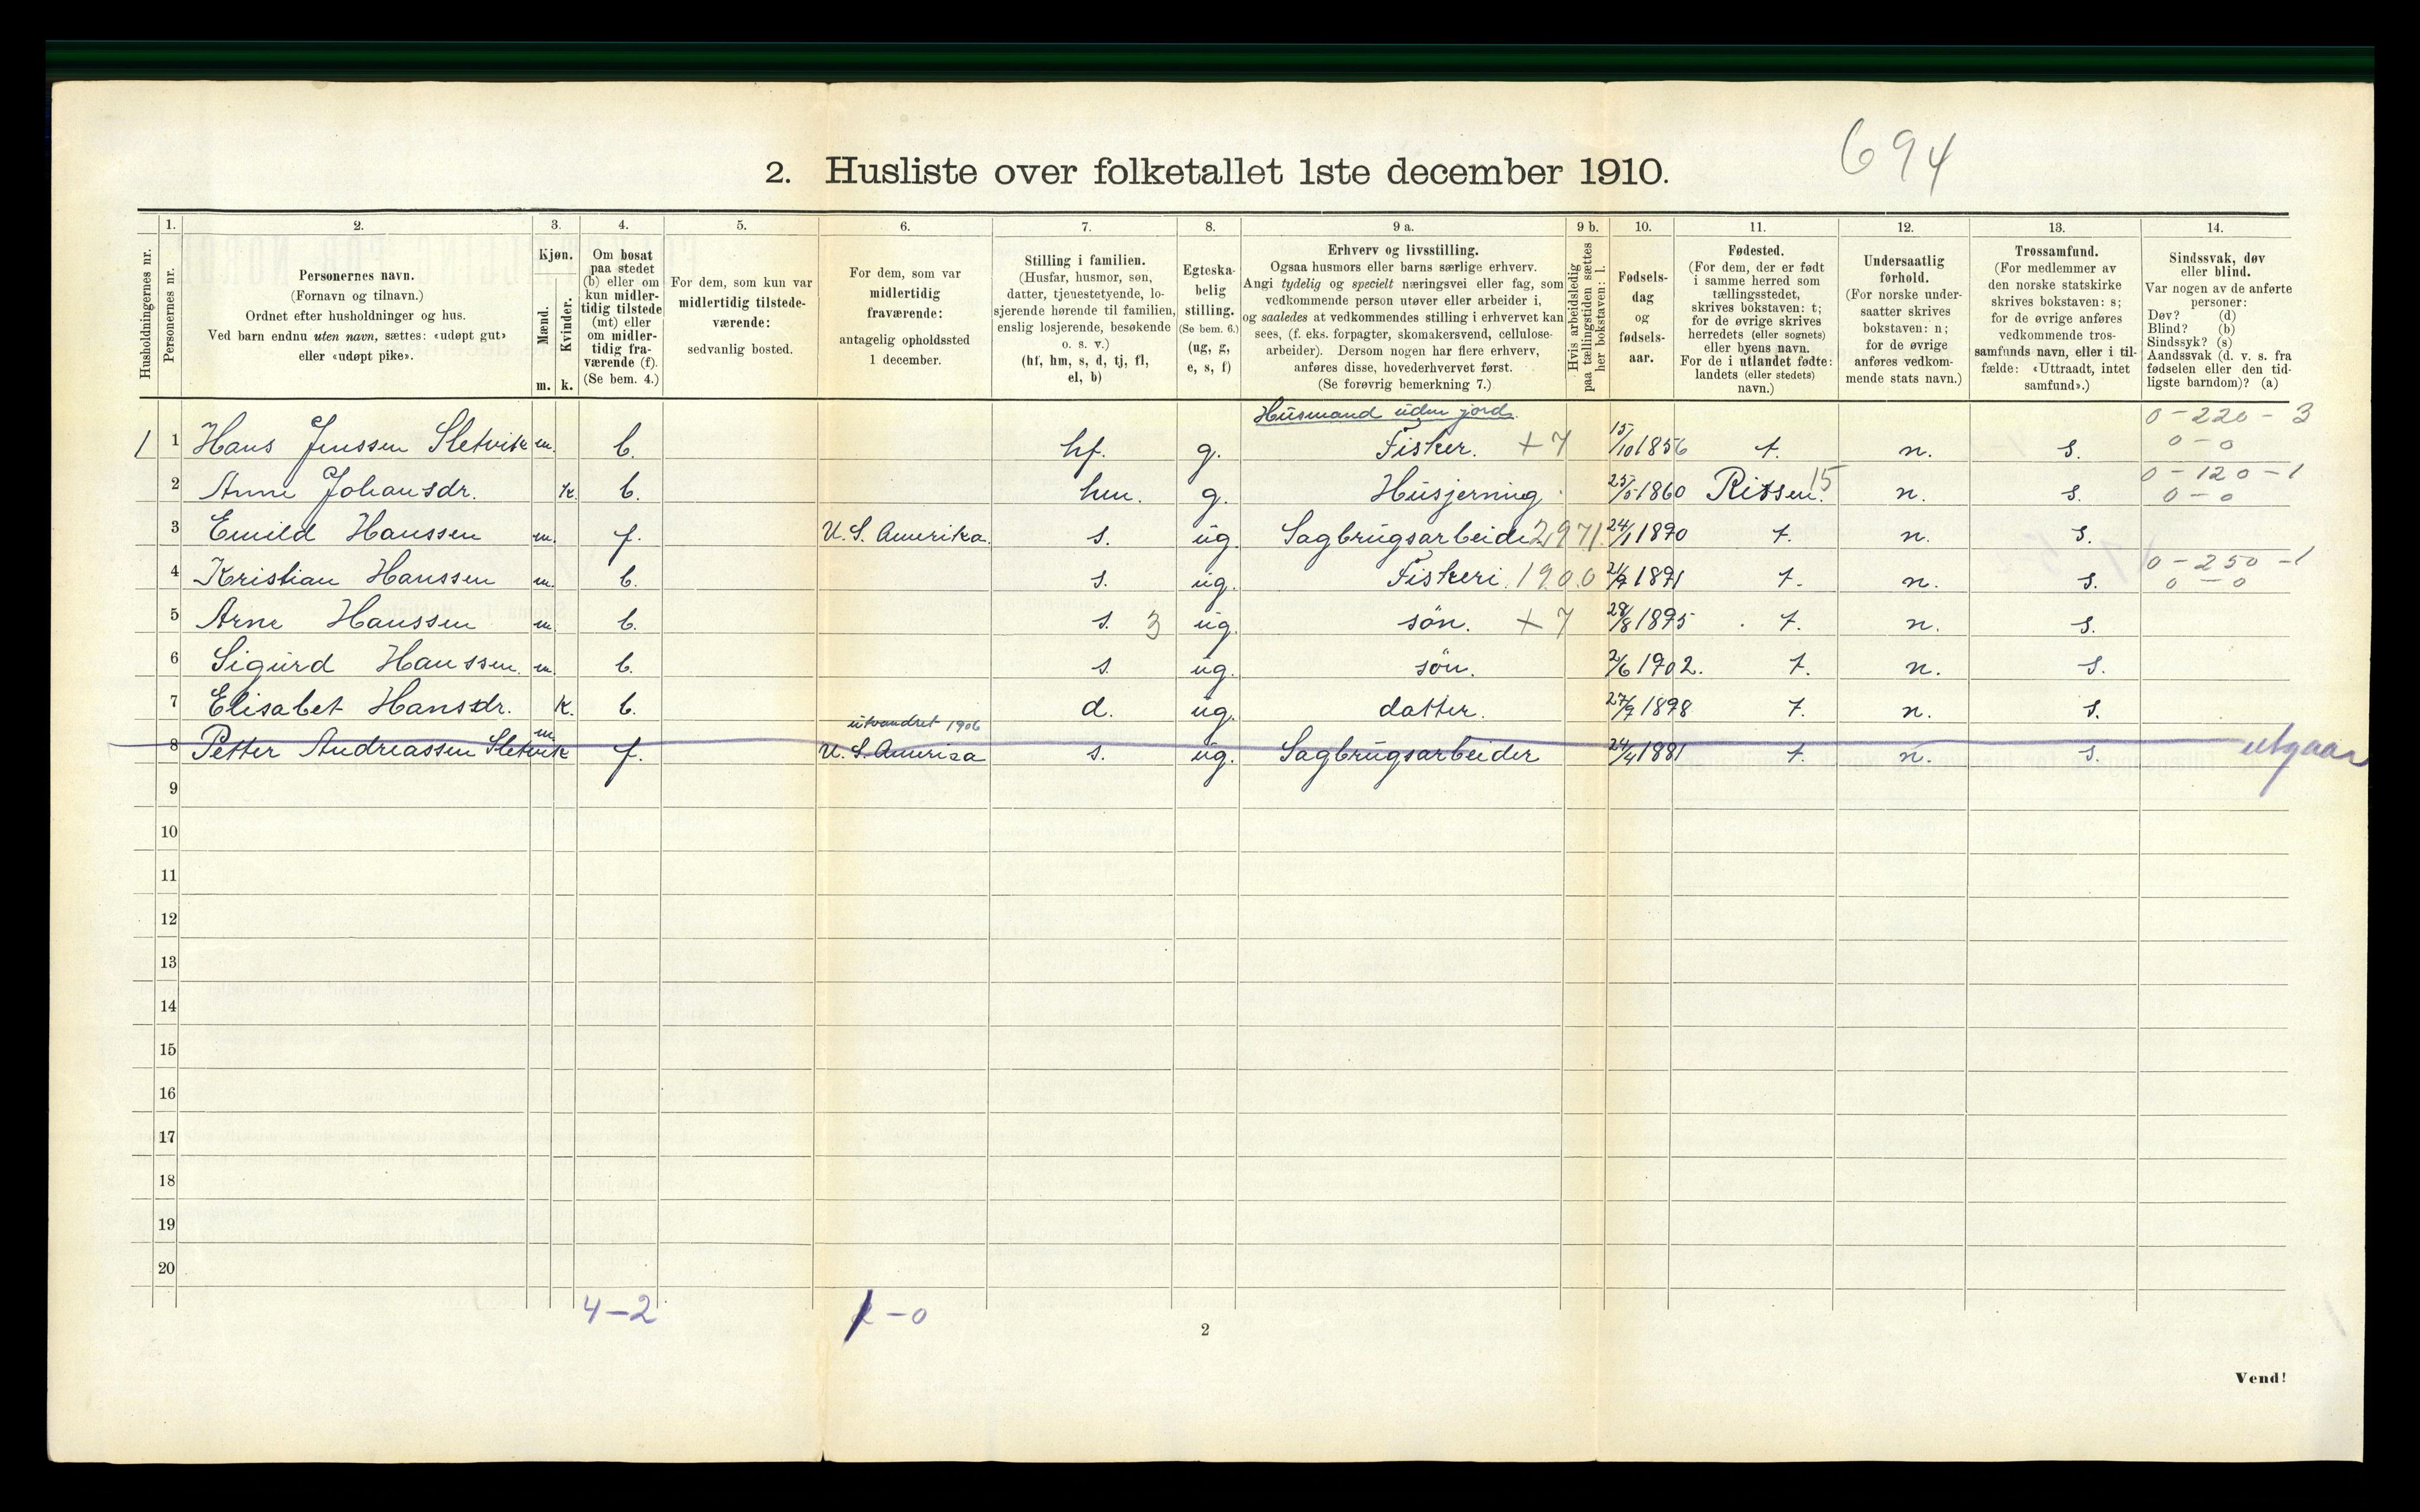 694
2. Husliste over folketallet 1ste december 1910.
Husholdningernes nr.
1.
Personernes nr.
2.
Personernes navn.
(Fornavn og tilnavn.)
Ordnet efter husholdninger og hus.
Ved barn endnu uten navn, sættes: «udøpt gut»
eller «udøpt pike».
3.
Kjøn.
Mænd.
Kvinder.
m. k.
4.
Om bosat
paa stedet
(b) eller om
kun midler-
tidig tilstede
(mt) eller
om midler-
tidig fra-
værende (f).
(Se bem. 4.)
5.
For dem, som kun var
midlertidig tilstede-
værende:
sedvanlig bosted.
6.
For dem, som var
midlertidig
fraværende:
antagelig opholdssted
1 december.
7.
Stilling i familien.
(Husfar, husmor, søn,
datter, tjenestetyende, lo-
sjerende hørende til familien,
enslig losjerende, besøkende
o. s. v.)
(hf, hm, s, d, tj, fl,
el, b)
8.
Egteska-
belig
stilling.
(Se bem. 6.)
(ug, g,
e, s, f)
9 a.
Erhverv og livsstilling.
Ogsaa husmors eller barns særlige erhverv.
Angi tydelig og specielt næringsvei eller fag, som
vedkommende person utøver eller arbeider i,
og saaledes at vedkommendes stilling i erhvervet kan
sees, (f. eks. forpagter, skomakersvend, cellulose-
arbeider). Dersom nogen har flere erhverv,
anføres disse, hovederhvervet først.
(Se forøvrig bemerkning 7.)
9 b.
Hvis arbeidsledig
paa tællingstiden sættes
her bokstaven: l.
10.
Fødsels-
dag
og
fødsels-
aar.
11.
Fødested.
(For dem, der er født
i samme herred som
tællingsstedet,
skrives bokstaven: t;
for de øvrige skrives
herredets (eller sognets)
eller byens navn.
For de i utlandet fødte:
landets (eller stedets)
navn.)
12.
Undersaatlig
forhold.
(For norske under-
saatter skrives
bokstaven: n;
for de øvrige
anføres vedkom-
mende stats navn.)
13.
Trossamfund.
(For medlemmer av
den norske statskirke
skrives bokstaven: s;
for de øvrige anføres
vedkommende tros-
samfunds navn, eller i til-
fælde: «Uttraadt, intet
samfund».)
14.
Sindssvak, døv
eller blind.
Var nogen av de anførte
personer:
Døv? (d)
Blind? (b)
Sindssyk? (s)
Aandssvak (d. v. s. fra
fødselen eller den tid-
ligste barndom)? (a)
Husmand uden jord. 0-220-3
1 1 Hans Jenssen Sletvik m. b. hf. g. Fisker. +7 15/10 1856 t. n. s. 0-0
0-120-1
2 Anne Johansdr. k. b. hm. g. Husjerning 25/5 1860 Rissen. 15 n. s. 0-0
3 Emild Hanssen m. f. U. S. Amerika. s. ug. Sagbrugsarbeide 2971. 24/1 1890 t. n. s.
0-250-1
4 Kristian Hanssen m. b. s. ug. Fiskeri. 1900 1891 t. n. s. 0-0
5 Arne Hanssen m. b. s. 3 ug. søn. +7 28/8 1895 t. n. s.
6 Sigurd Hanssen. m. b. s ug. søn. 2/6 1902. t. n. s.
7 Elisabet Hansdr. k. b. d. ug. datter. 27/7 1898 t. n. s.
utvandret 1906
8 Petter Andreassen Sletvik m. f. U. S. America s. ug. Sagbrugsarbeider 24/4 1881 t. n. s. utgaar
9
10
11
12
13
14
15
16
17
18
19
20
4-2 -0
2
Vend!